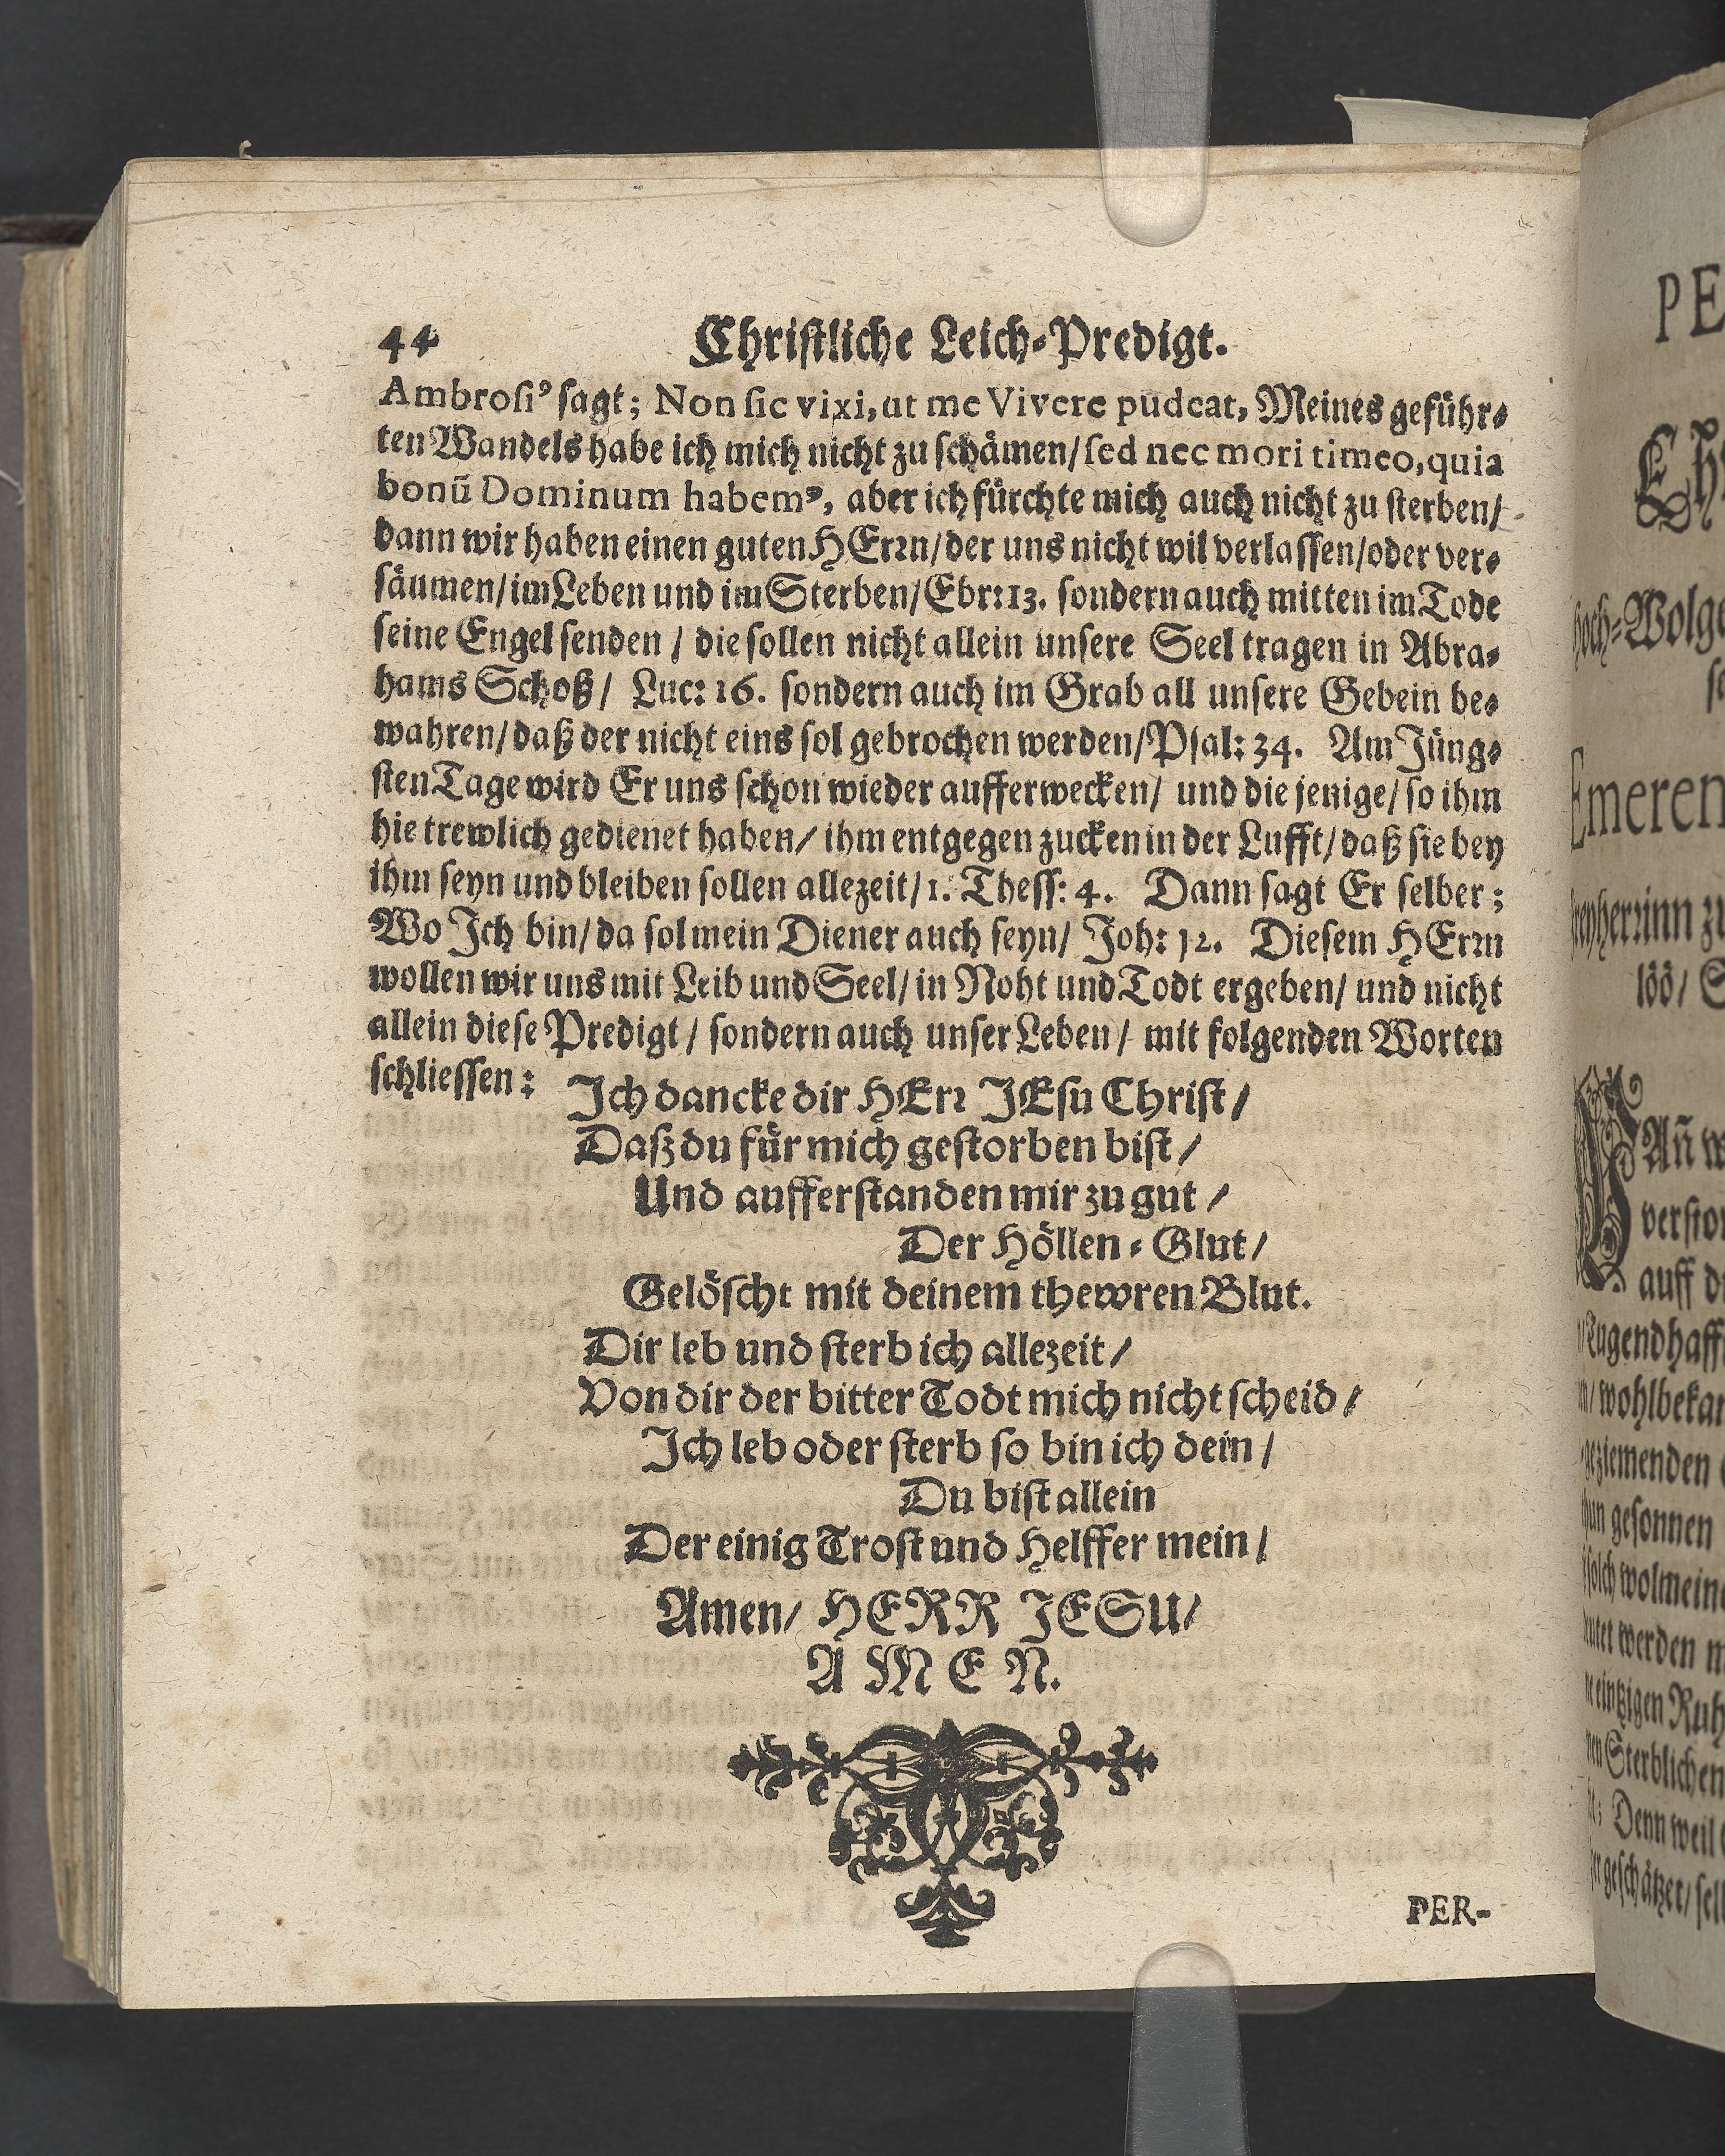 44 Christliche Leich-Predigt.
Ambrosiꝰ sagt; Non sic vixi, ut me Vivere pudeat, Meines geführ-
ten Wandels habe ich mich nicht zu schämen/ sed nec mori timeo, quia
bonū Dominum habemꝰ, aber ich fürchte mich auch nicht zu sterben/
dann wir haben einen guten HErꝛn/ der uns nicht wil verlassen/ oder ver-
säumen/ im Leben und im Sterben/ Ebr: 13. sondern auch mitten im Tode
seine Engel senden / die sollen nicht allein unsere Seel tragen in Abra-
hams Schoß/ Luc: 16. sondern auch im Grab all unsere Gebein be-
wahren/ daß der nicht eins sol gebrochen werden/ Psal: 34. Am Jüng-
sten Tage wird Er uns schon wieder aufferwecken/ und die jenige/ so ihm
hie trewlich gedienet haben/ ihm entgegen zucken in der Lufft/ daß sie bey
ihm seyn und bleiben sollen allezeit/ 1. Thess: 4. Dann sagt Er selber;
Wo Ich bin/ da sol mein Diener auch seyn/ Joh: 12. Diesem HErꝛn
wollen wir uns mit Leib und Seel/ in Noht und Todt ergeben/ und nicht
allein diese Predigt / sondern auch unser Leben/ mit folgenden Worten
schliessen:
Ich dancke dir HErꝛ JEsu Christ/
Daß du für mich gestorben bist/
Und aufferstanden mir zu gut /
Der Höllen-Glut/
Gelöscht mit deinem thewren Blut.
Dir leb und sterb ich allezeit/
Von dir der bitter Todt mich nicht scheid/
Ich leb oder sterb so bin ich dein/
Du bist allein
Der einig Trost und Helffer mein/
Amen/ HERR JESU/
AMEN.
PER-
PE
Emeren
och-Wolge
löö/
Añ w
verstor
auff d
wohlbekan
gesonnen
werden
Denn weil